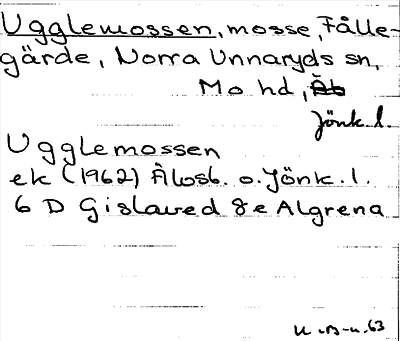 Ugglemossen, mosse, Fålle-
gärde, Norra Unnaryds sn,
Mo hd, Äb
Jönk. l.
Ugglemossen
ek (1962) Älvsb. o. Jönk. l.
6 D Gislaved 8e Algrena